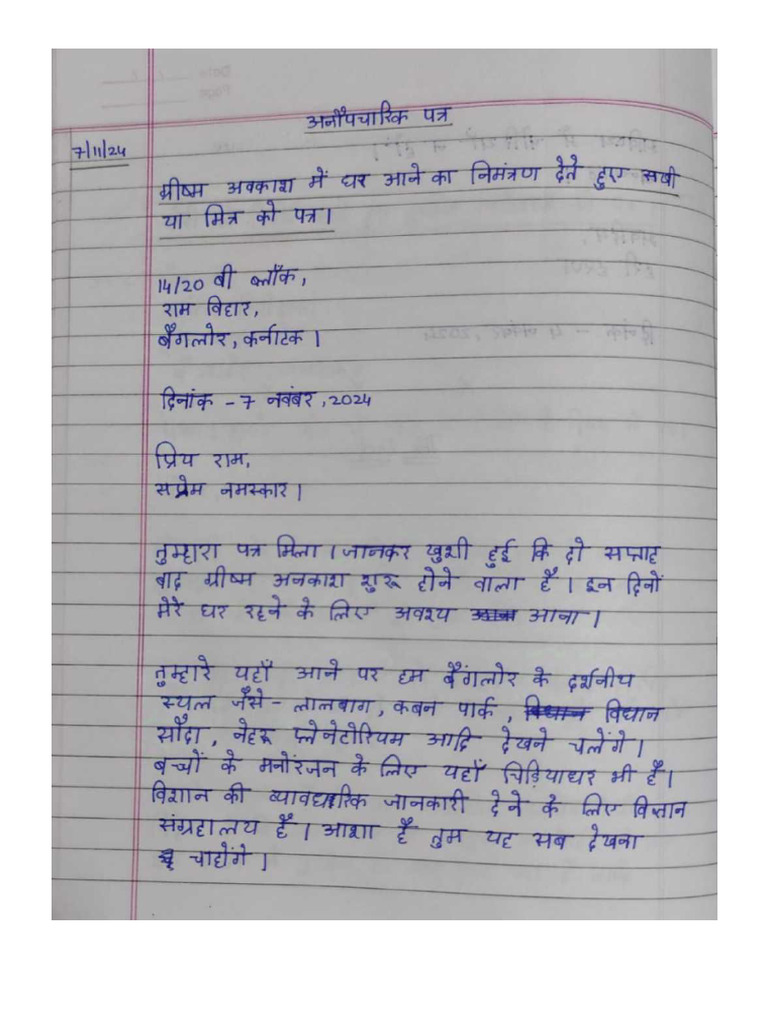 अनौपचारिक पत्र
7/11/24
ग्रीष्म अवकाश में घर आने का निमंत्रण देते हुए सखी
या मित्र को पत्र।
14/20 बी ब्लॉक,
राम विहार,
बैंगलोर, कर्नाटक।
दिनांक - 7 नवंबर, 2024
प्रिय राम,
सप्रेम नमस्कार।
तुम्हारा पत्र मिला। जानकर खुशी हुई कि दो सप्ताह
बाद ग्रीष्म अवकाश शुरू होने वाला है। इन दिनों
मेरे घर रहने के लिए अवश्य आना।
तुम्हारे यहाँ आने पर हम बैंगलोर के दर्शनीय
स्थल जैसे - लालबाग, कबन पार्क, विधान
सौदा, नेहरू प्लेनेटोरियम आदि देखने चलेंगे।
बच्चों के मनोरंजन के लिए यहाँ चिड़ियाघर भी है।
विज्ञान की व्यावहारिक जानकारी देने के लिए विज्ञान
संग्रहालय है। आशा है तुम यह सब देखना
चाहोगे।